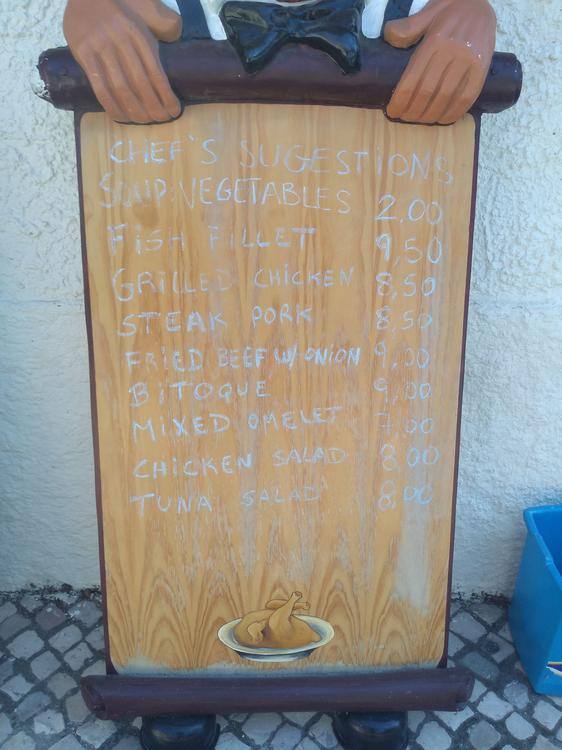 CHEF'S SUGESTIONS
SOUP:VEGETABLES 2,00
FISH FILLET 9,50
GRILLED CHICKEN 8,50
STEAK PORK 8,50
FRIED BEEF W/ ONION 9,00
BITOQUE 9,00
MIXED OMELET 7,00
CHICKEN SALAD 8,00
TUNA SALAD 8,00